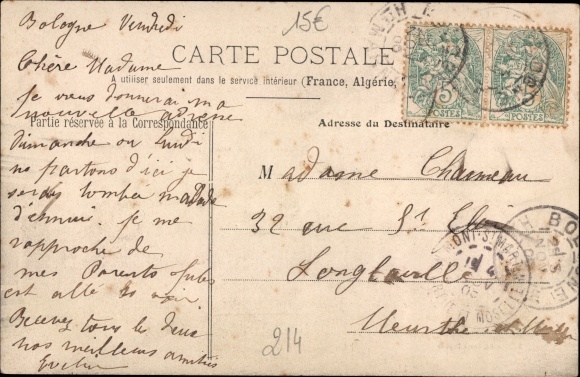 Bologne Vendredi
15€
CARTE POSTALE
A utiliser seulement dans le service intérieur (France, Algérie,
Chère Madame
je vous donnerai ma
nouvelle adresse
Partie réservée à la Correspondance
Dimanche ou lundi
nous partons d'ici je
tomber malade
d'ennui. Je me
rapproche de
mes Parents Jules
est allé les voir
Recevez tous les deux
nos meilleurs amitiés
Adresse du Destinataire
Madame
32 rue St
Longlaville
Meurthe et
214
5
POSTES
POSTES